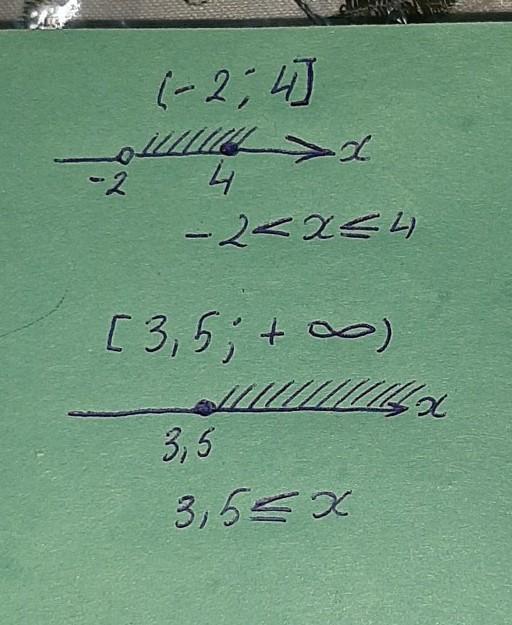 (-2; 4]
x
-2 4
-2 < x ≤ 4
[3,5; + ∞)
x
3,5
3,5 ≤ x